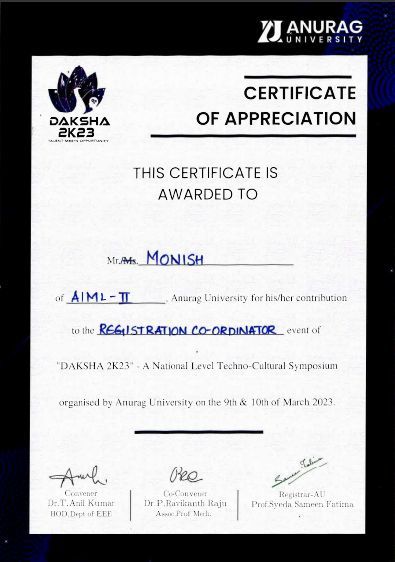 ANURAG
UNIVERSITY
DAKSHA
2K23
TALENT MEETS OPPORTUNITY
CERTIFICATE
OF APPRECIATION
THIS CERTIFICATE IS
AWARDED TO
Mr./Ms. MONISH
of AIML-II, Anurag University for his/her contribution
to the REGISTRATION CO-ORDINATOR event of
"DAKSHA 2K23" - A National Level Techno-Cultural Symposium
organised by Anurag University on the 9th & 10th of March 2023.
Convener
Dr.T.Anil Kumar
HOD,Dept of EEE
Co-Convener
Dr.P.Ravikanth Raju
Assoc.Prof Mech.
Sameen Fatima
Registrar-AU
Prof.Syeda Sameen Fatima